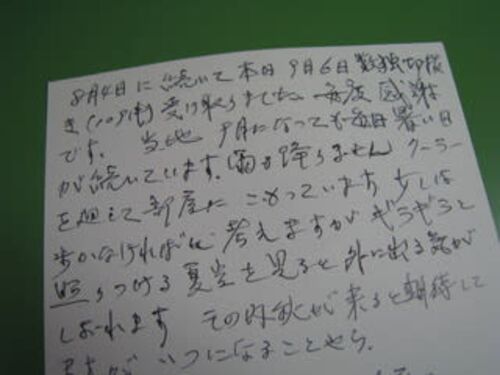 8月4日に続いて本日9月6日数独切抜
き(109馬)受け取りました。毎度感謝
です。当地9月になっても毎日暑い日
が続いています。雨も降りません クーラー
を廻して部屋にこもっています 少しは
歩かなければに考えますが ギラギラと
照りつける夏空を見ると外に出る気が
しおれます その内秋が来ると期待して
ますが いつになることやら.